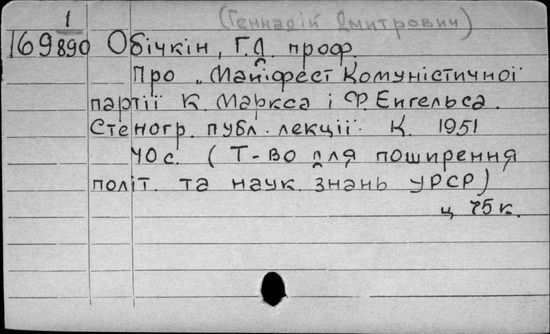 1
(Геннадій Дмитрович)
169890 Обічкін, Г.Д. проф.
Про „Маніфест Комуністичної
партії К. Маркса і Ф. Енгельса.
Стеногр. публ. лекції. К. 1951
40 с. (Т-во для поширення
політ. та наук. знань УРСР)
ц. 75 к.